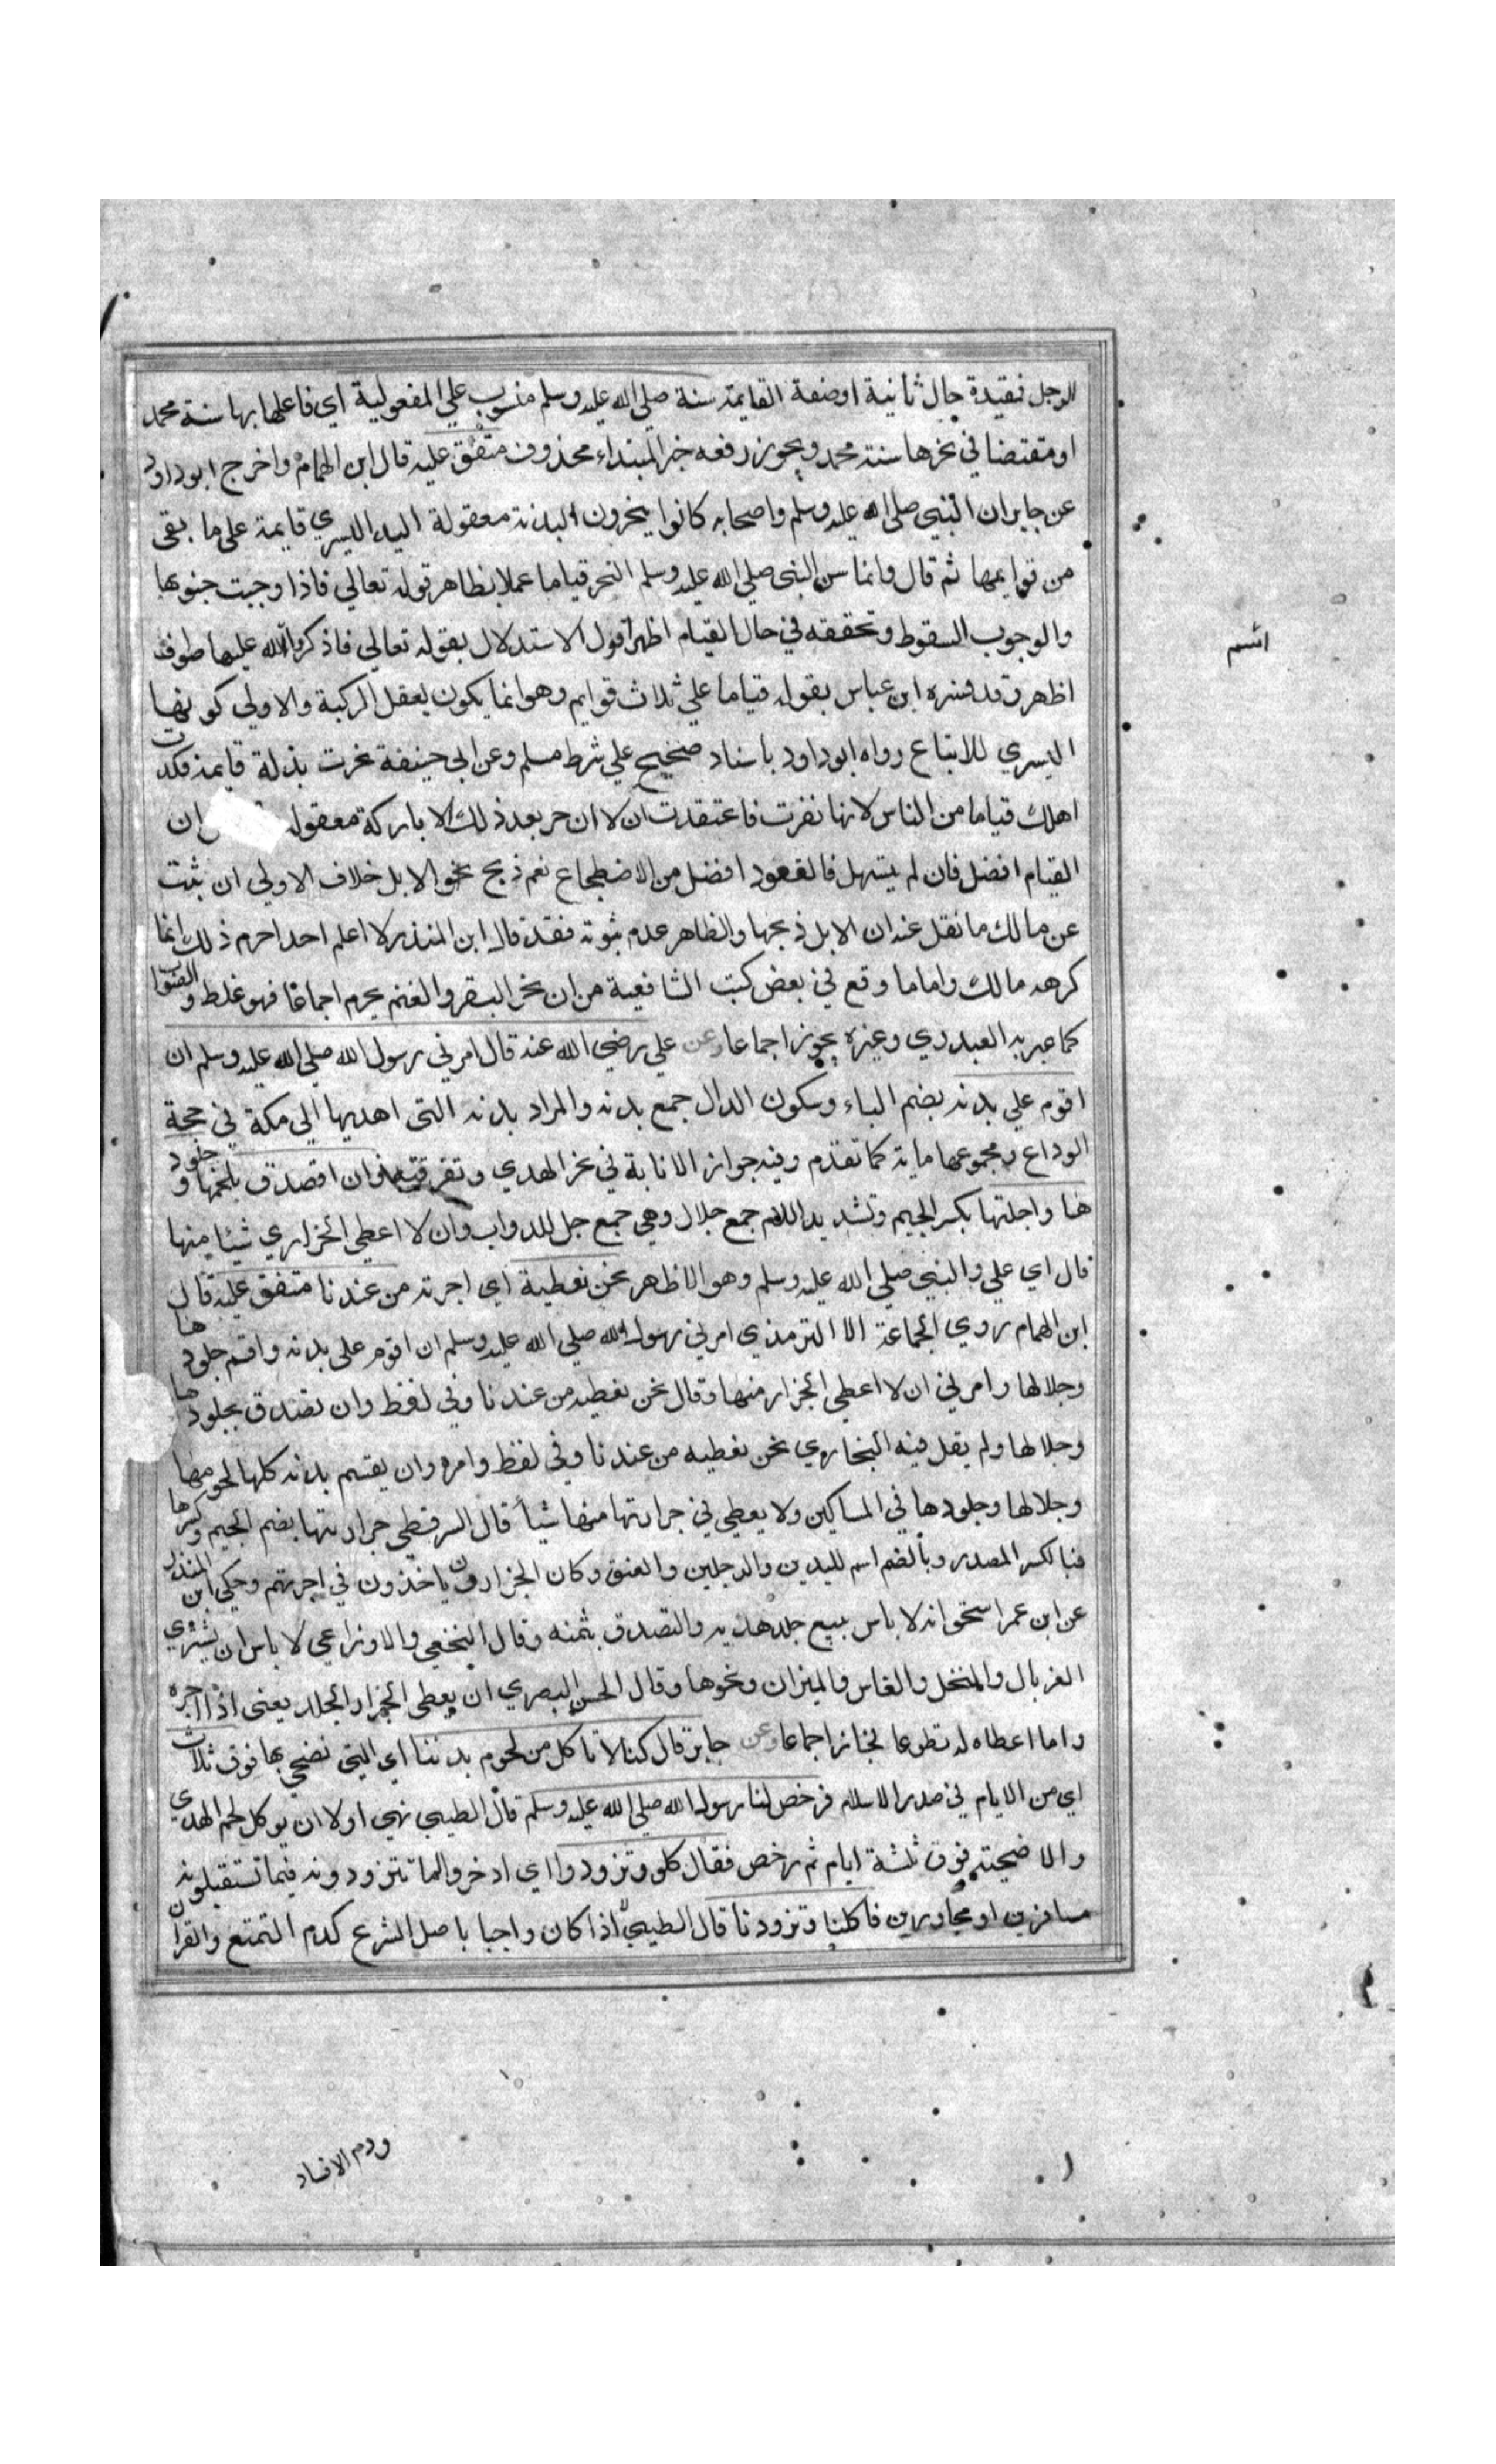 الرجل فقيدة حال ثانية اوصفة القايمة سنة صلي الله عليه وسلم منصوب علي المفعولية اي فاعلها بها سنة محمد
او مقتضا في نحرها سنة محمد ويجوز رفعه خبر المبتداء محذوف متفق عليه قال ابن الهمام واخرج ابو داود
عن جابر ان النبي صلي الله عليه وسلم واصحابه كانوا ينحرون البدنة معقولة اليد اليسري قايمة على ما بقى
من قوايمها ثم قال وانما سن النبي صلي الله عليه وسلم النحر قياما عملا بظاهر قوله تعالي فاذا وجبت جنوبها
والوجوب السقوط وتحققه في حال القيام اظهر اقول الاستدلال بقوله تعالي فاذكروا الله عليها صوف
اظهر وقد فسره ابن عباس بقوله قياما علي ثلاث قوايم وهو انما يكون بعقل الركبة والاولي كونها
اليسري للاتباع رواه ابو داود باسناد صحيح علي شرط مسلم وعن ابي حنيفة نحرت بدنة قايمة فكدت
اهلك قياما من الناس لانها نفرت فاعتقدت ان لا انحر بعد ذلك الا باركة معقولة ان
القيام افضل فان لم يتسهل فالقعود افضل من الاضطجاع نعم ذبح نحو الابل خلاف الاولي ان ثبت
عن مالك ما نقل عنه ان الابل ذبحها والظاهر عدم ثبوته فقد قال ابن المنذر لا اعلم احدا حرم ذلك انما
كرهه مالك واما ما وقع في بعض كتب الشافعية من ان نحر البقر والغنم يحرم اجماعا فهو غلط والصواب
كما عبر به العبدري وغيره يجوز اجماعا وعن علي رضي الله عنه قال امرني رسول الله صلي الله عليه وسلم ان
اقوم علي بدنه بضم الباء وسكون الدال جمع بدنة والمراد بدنه التي اهديها الي مكة في حجة
الوداع ومجموعها ماية كما تقدم وفيه جواز الانابة في نحر الهدي وتفرقته وان اتصدق بلحمها وجلود
ها واجلتها بكسر الجيم وتشديد اللام جمع جلال وهي جمع جل للدواب وان لا اعطي الجزاري شيئا منها
قال اي علي والنبي صلي الله عليه وسلم وهو الاظهر نحن نعطية اي اجرته من عندنا متفق عليه قال
ابن الهمام روي الجماعة الا الترمذي امرني رسول الله صلي الله عليه وسلم ان اقوم على بدنه واقسم جلودها
وجلالها وامرني ان لا اعطي الجزار منها وقال نحن نعطيه من عندنا وفي لفظ وان تصدق بجلودها
وجلالها ولم يقل فيه البخاري نحن نعطيه من عندنا وفي لفظ وامره وان يقسم بدنه كلها لحومها
وجلالها وجلودها في المساكين ولا يعطي في جزارتها منها شيأ قال السرقسطي جزارتها بضم الجيم وكسرها
فبالكسر المصدر وبالضم اسم لليدين والرجلين والعنق وكان الجزارون ياخذون في اجرتهم وحكي ابن المنذر
عن ابن عمر اسحق انه لا باس ببيع جلد هديه والتصدق بثمنه وقال النخعي والاوزاعي لا باس ان يشتري
الغربال والمنخل والفاس والميزان ونحوها وقال الحسن البصري ان يعطي الجزار الجلد يعني اذا اجره
واما اعطاه له تطوعا فجائز اجماعا وعن جابر قال كنا لا ناكل من لحوم بدننا اي التي نضحي بها فوق ثلاث
اي من الايام في صدر الاسلام فرخص لنا رسول الله صلي الله عليه وسلم قال الطيبي نهي اولا ان يوكل لحم الهدي
والاضحية فوق ثلثة ايام ثم رخص فقال كلو وتزودوا اي ادخروا لما تتزودونه فيما تستقبلونه
مسافرين او مجاورين فاكلنا وتزودنا قال الطيبي اذا كان واجبا باصل الشرع كدم التمتع والقران
ودم الافساد